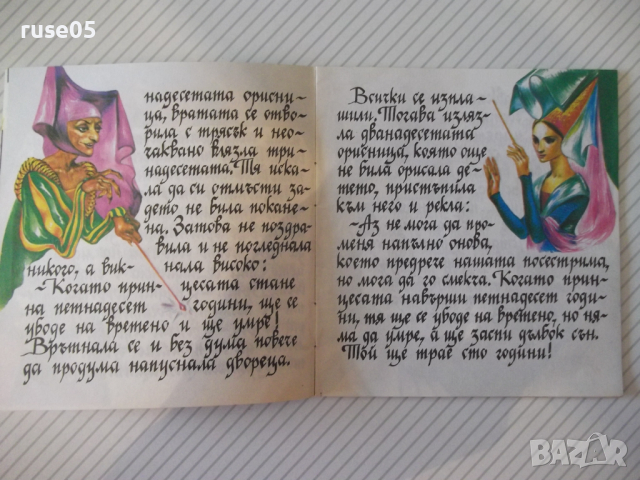 ruse05
надесетата орисни-
ца, вратата се отво-
рила с трясък и нео-
чаквано влязла три-
надесетата. Тя иска-
ла да си отмъсти за-
дето не била покане-
на. Затова не поздра-
вила и не погледнала
никого, а вик-
нала високо:
-Когато прин-
цесата стане
на петнадесет
години, ще се
убоде на вретено и ще умре!
Врътнала се и без дума повече
да продума напуснала двореца.
Всички се изпла-
шили. Тогава изляз-
ла дванадесетата
орисница, която още
не била орисала де-
тето, пристъпила
към него и рекла:
-Аз не мога да про-
меня напълно онова,
което предрече нашата посестрима,
но мога да го смекча. Когато прин-
цесата навърши петнадесет годи-
ни, тя ще се убоде на вретено, но ня-
ма да умре, а ще заспи дълбок сън.
Той ще трае сто години!
BAZAR